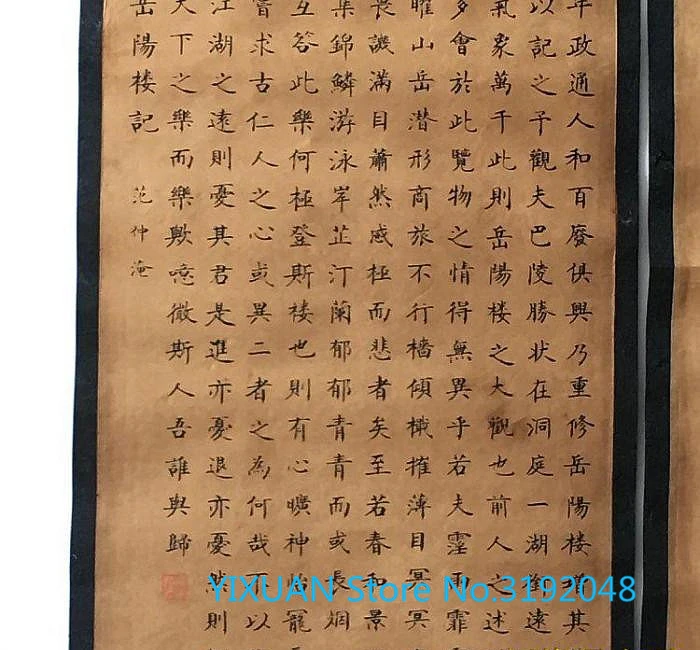 年政通人和百廢俱興乃重修岳陽楼增其
以記之予觀夫巴陵勝状在洞庭一湖銜遠
氣象萬千此則岳陽楼之大觀也前人之述
多會於此覽物之情得無異乎若夫霪雨霏
曜山岳潜形商旅不行檣傾檝摧薄目冥冥
畏譏滿目蕭然感極而悲者矣至若春和景
集錦鱗游泳岸芷汀蘭郁郁青青而或長烟
互答此樂何極登斯楼也則有心曠神怡寵
嘗求古仁人之心或異二者之為何哉不以
江湖之遠則憂其君是進亦憂退亦憂然則
天下之樂而樂歟噫微斯人吾誰與歸
岳陽楼記 范仲淹
YIXUAN Store No.3192048